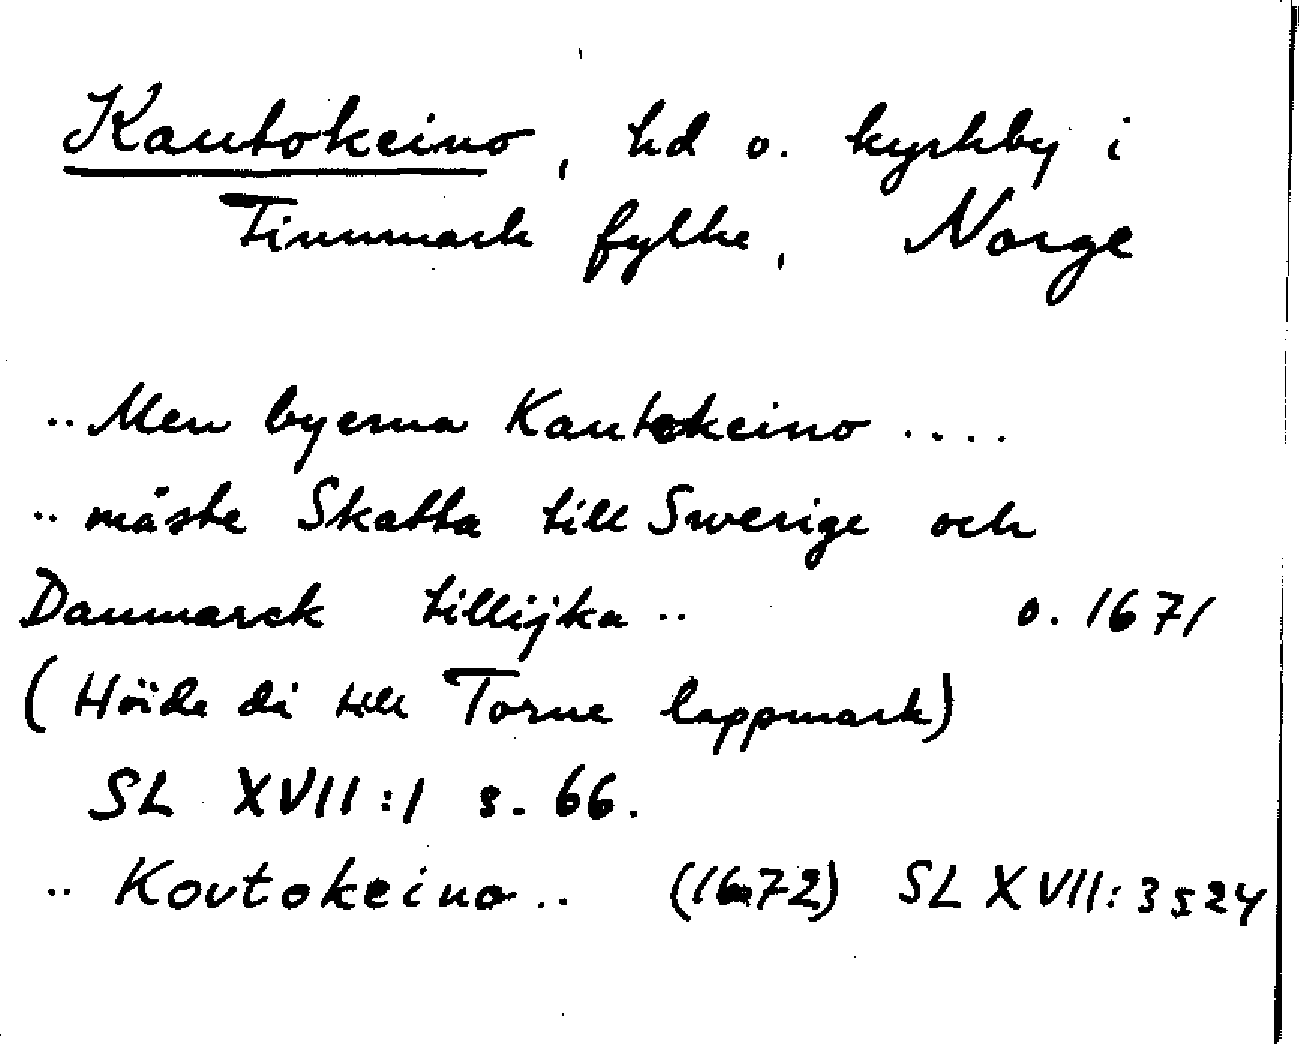 Kautokeino, hd o. kyrkby i
Finnmark fylke, Norge
.. Men byerna Kautokeino ....
.. måste Skatta till Swerige och
Danmarck tillijka .. o. 1671
(Hörde då till Torne lappmark)
SL XVII:1 s. 66.
.. Kovtokeino .. (1672) SL XVII:3 s 24